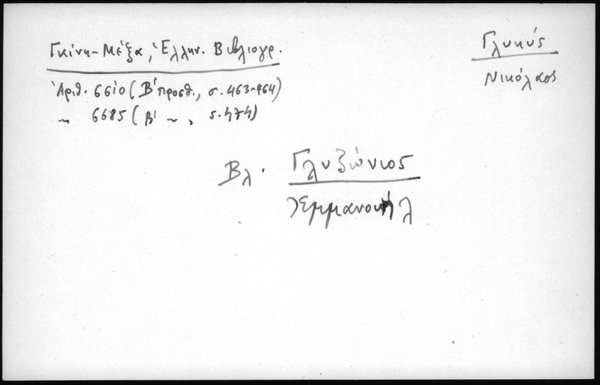 Γκίνη-Μέξα, Ἑλλην. Βιβλιογρ.
Ἀριθ. 6610 (Β' προσθ., σ. 463-464)
〃 6685 (Β' 〃, σ. 474)
Γλυκύς
Νικόλαος
Βλ. Γλυζώνιος
Ἐμμανουήλ